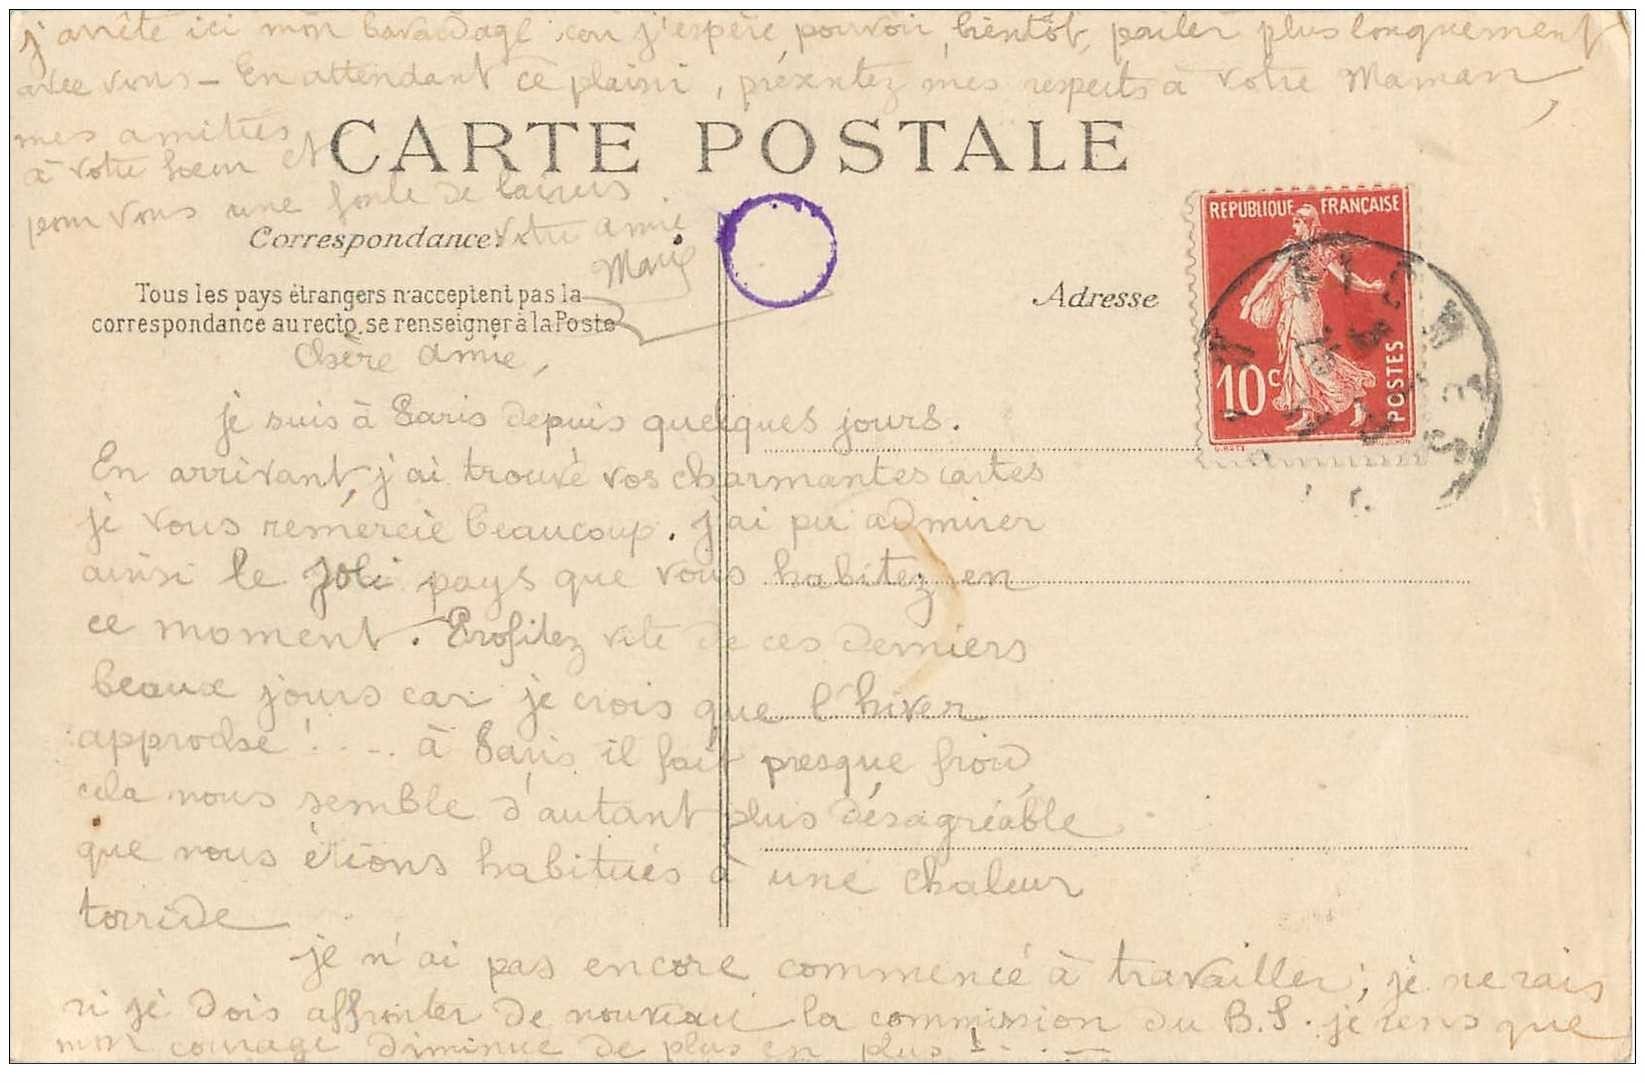 j'arrête ici mon bavardage car j'espère pouvoir bientôt parler plus longuement
avec vous — En attendant ce plaisir, présentez mes respects à votre Maman,
mes amitiés
à votre soeur et
pour vous une foule de baisers
votre amie
Marie
CARTE POSTALE
Correspondance
Tous les pays étrangers n'acceptent pas la
correspondance au recto, se renseigner à la Poste
Adresse
REPUBLIQUE FRANÇAISE
10c
POSTES
Chère amie,
je suis à Paris depuis quelques jours.
En arrivant j'ai trouvé vos charmantes cartes
je vous remercie beaucoup. j'ai pu admirer
ainsi le joli pays que vous habitez en
ce moment. Profitez vite de ces derniers
beaux jours car je crois que l'hiver
approche ! . . . . à Paris il fait presque froid,
cela nous semble d'autant plus désagréable
que nous étions habitués à une chaleur
torride
je n'ai pas encore commencé à travailler ; je ne sais
si je dois affronter de nouveau la commission du B.S. je sens que
mon courage diminue de plus en plus ! . . . —